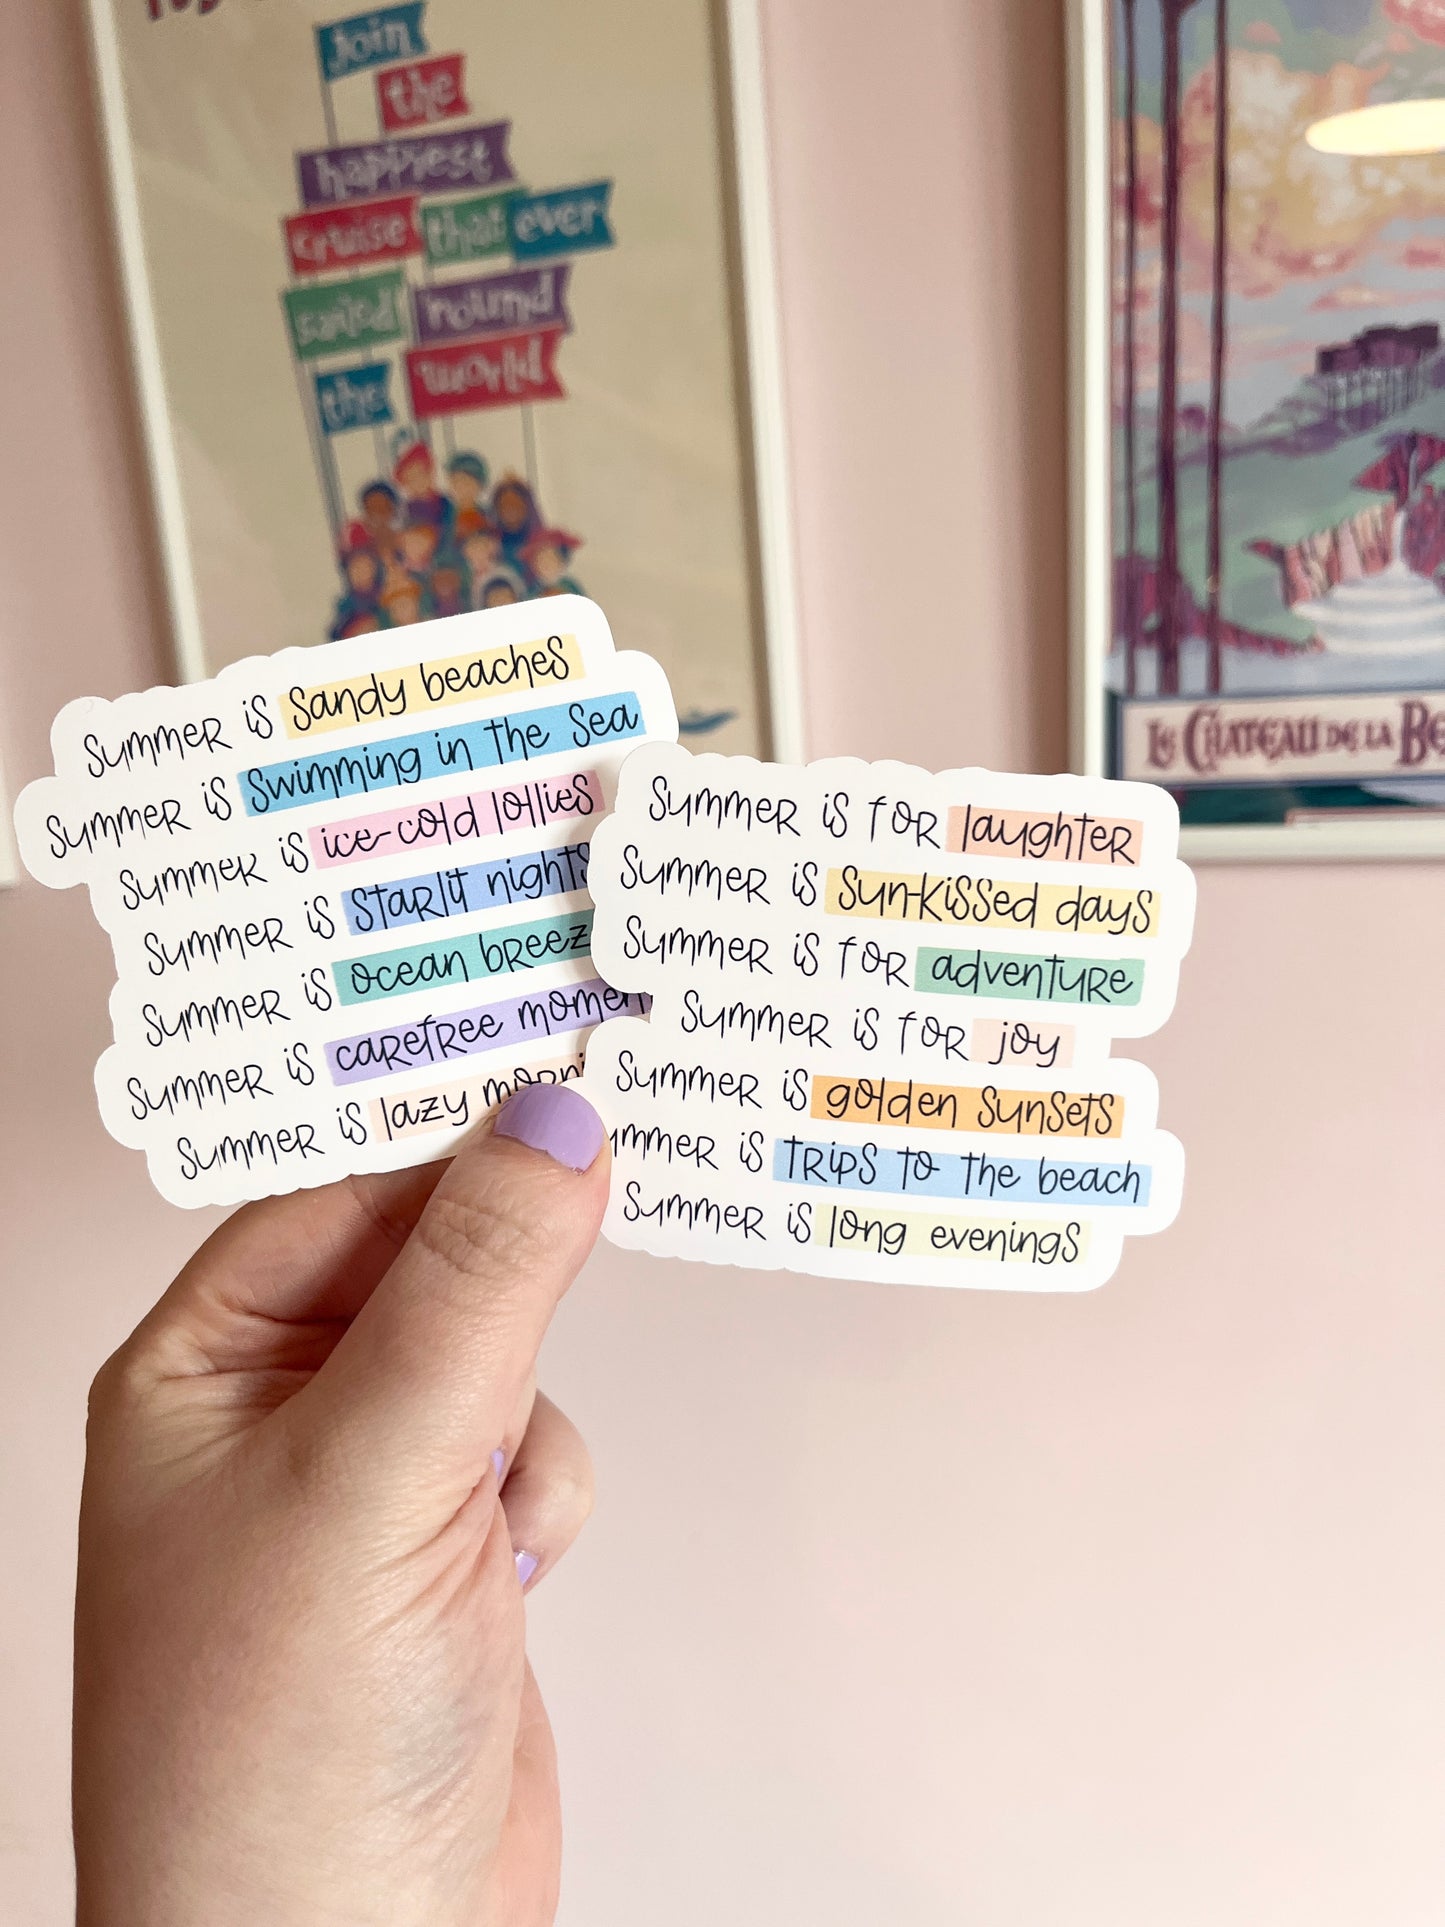 Join
the
happiest
cruise that ever
sailed 'round
the world
Summer is sandy beaches
Summer is swimming in the sea
Summer is ice-cold lollies
Summer is starlit nights
Summer is ocean
Summer is carefree
Summer is lazy
Summer is for laughter
Summer is sun-kissed days
Summer is for adventure
Summer is for joy
Summer is golden sunsets
is trips to the beach
Summer is long evenings
Le Château de la